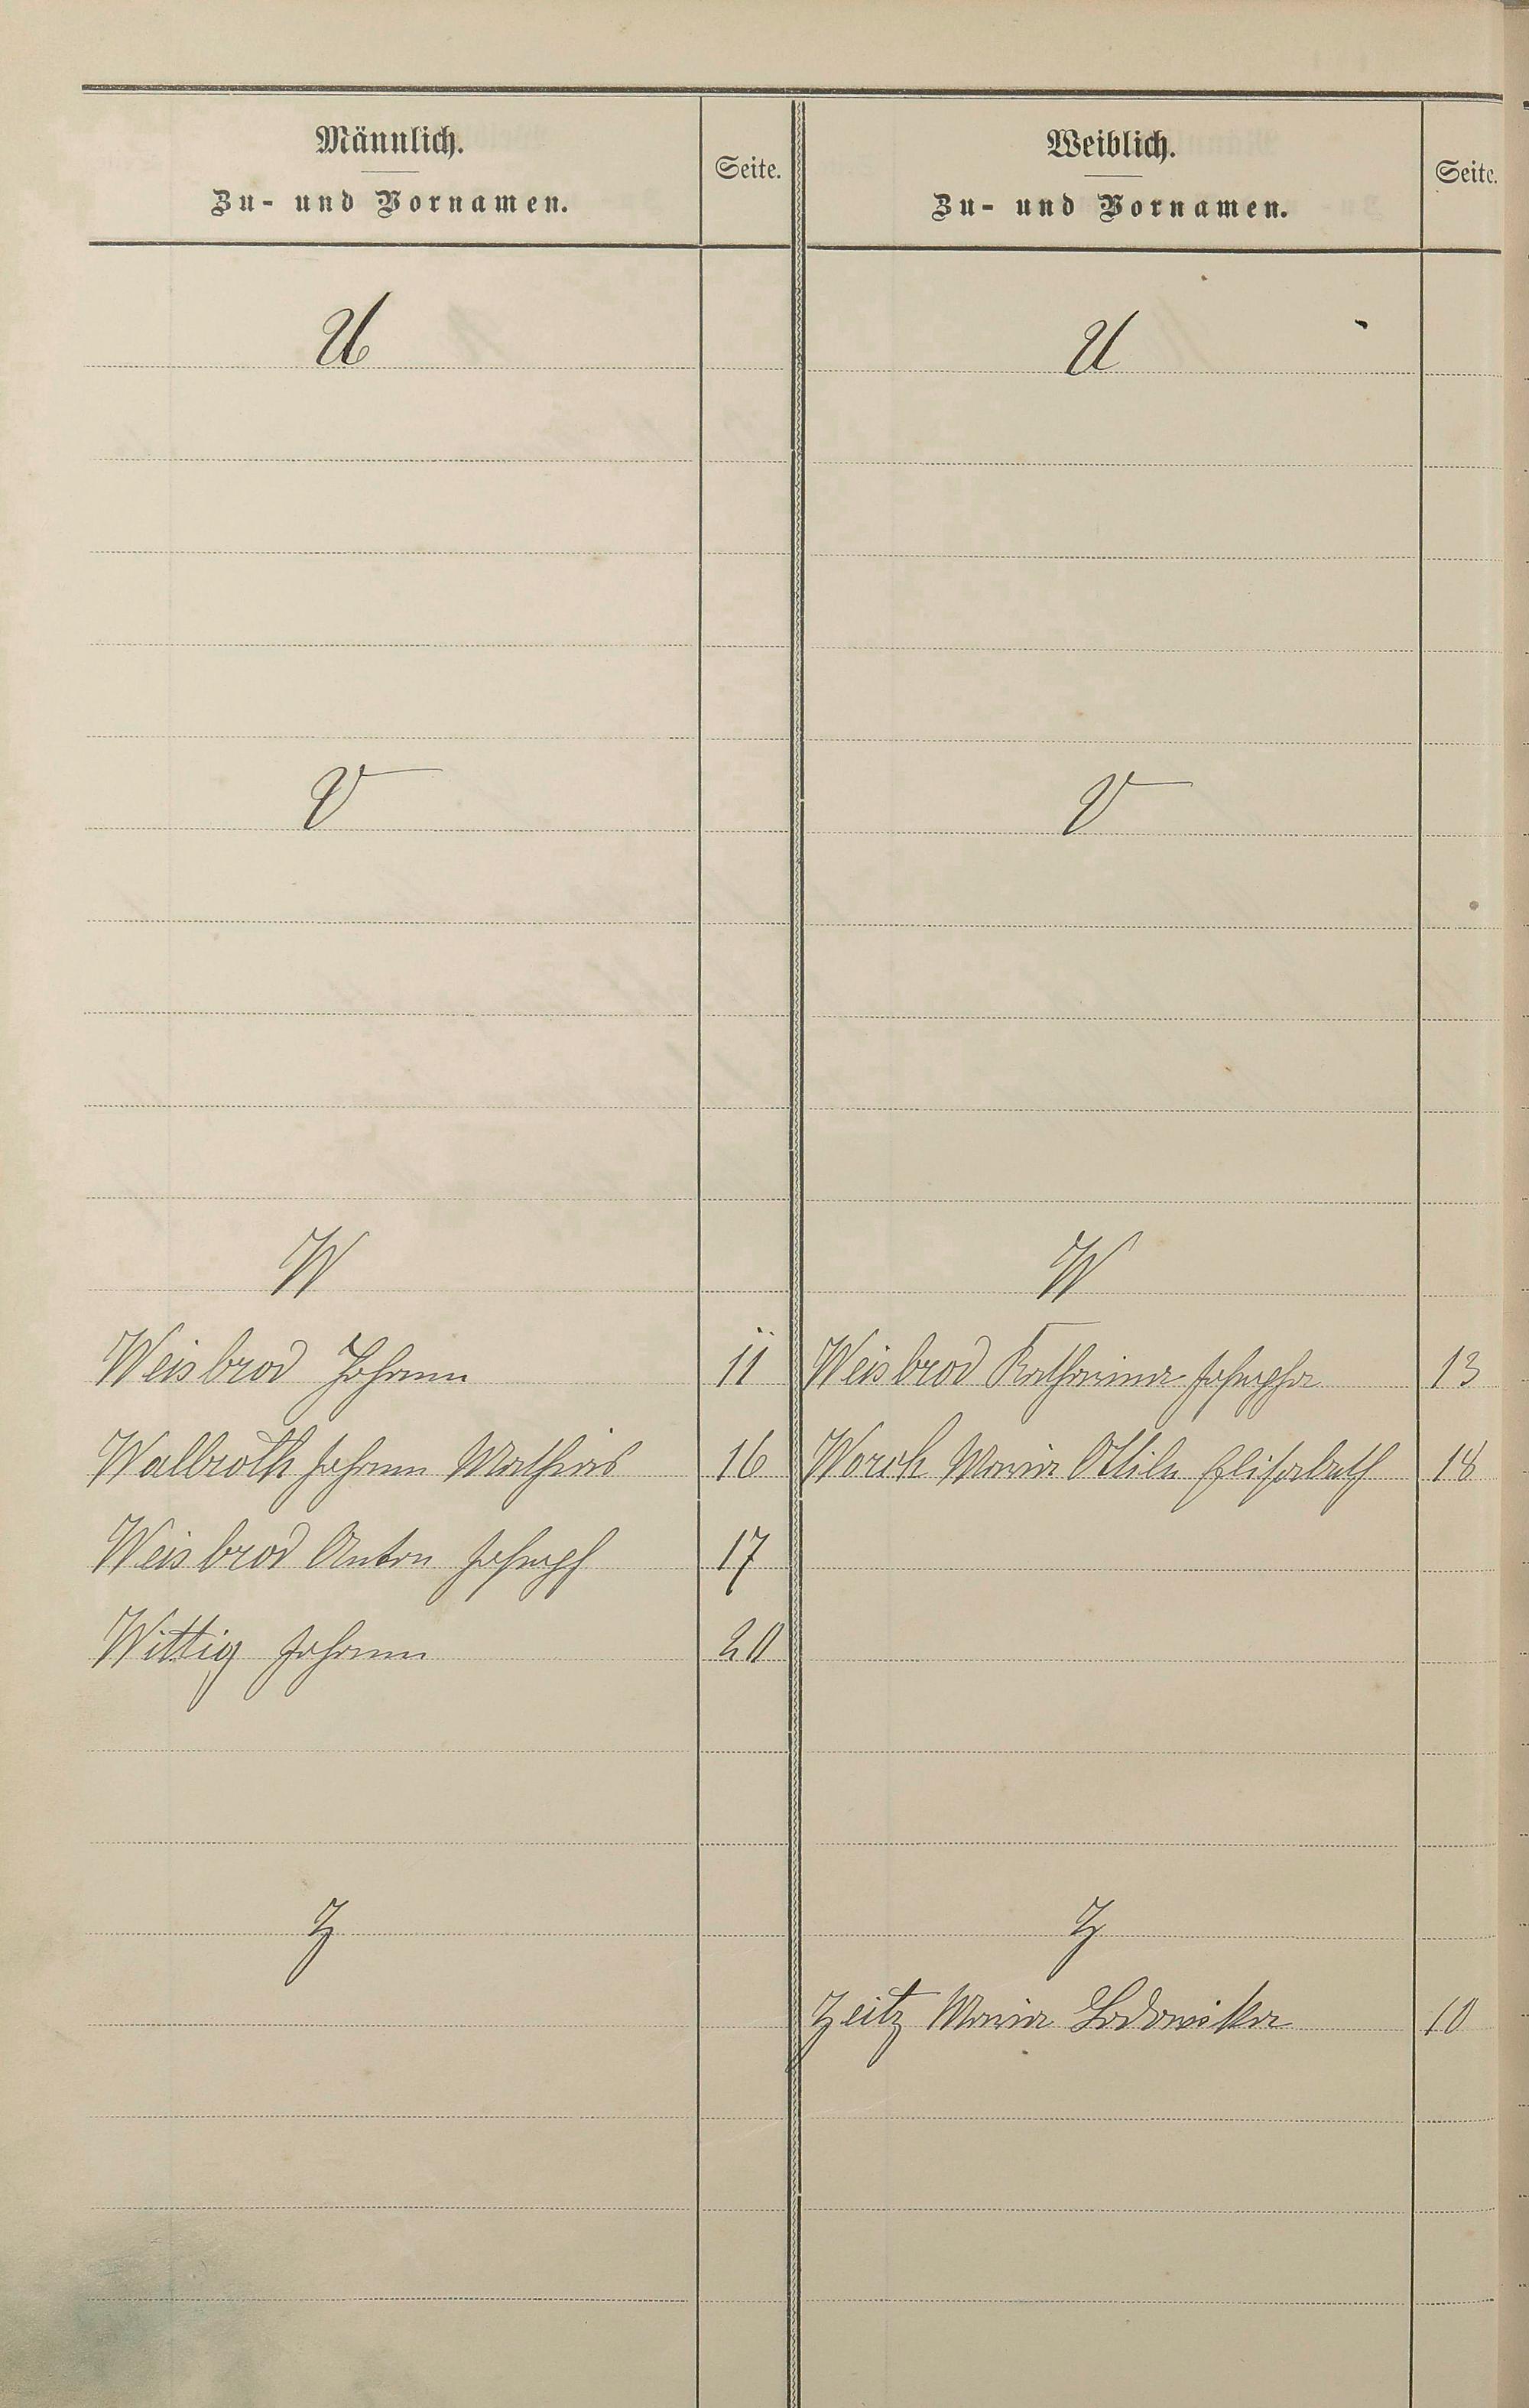 Männlich.
Zu- und Vornamen.
Seite.
Weiblich.
Zu- und Vornamen.
Seite.
U
U
V
V
W
W
Weisbrod Johann 11
Weisbrod Katharina Josepha 13
Walbroth Johann Mathias 16
Worch Maria Ottilie Elisabeth 18
Weisbrod Anton Joseph 17
Wittig Johann 20
Z
Z
Zeitz Maria Lodowika 10